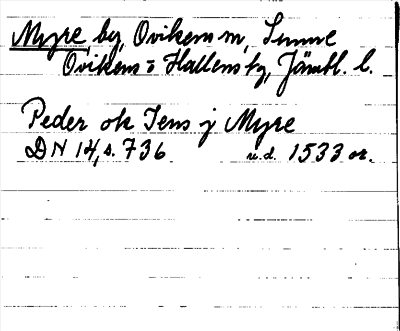 Myre, by, Ovikens sn, Sunne
Ovikens o Hallens tg, Jämtl. l.
Peder ok Jens j Myre
DN 14, s. 736 u.d. 1533 or.